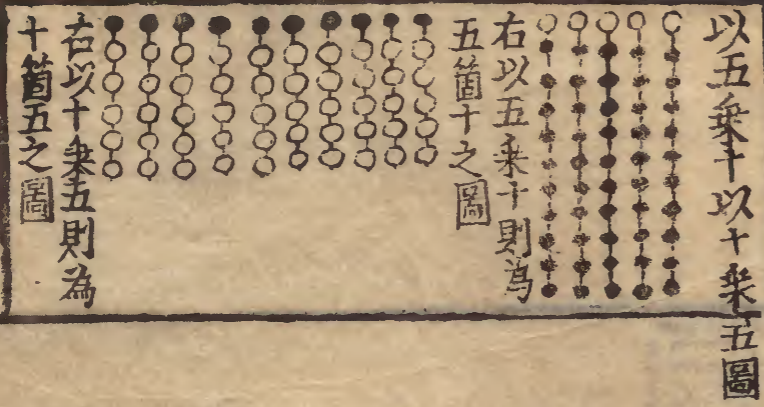 以五乗十以十乗五圖
右以五乗十則為
五箇十之圖
右以十乗五則為
十箇五之圖